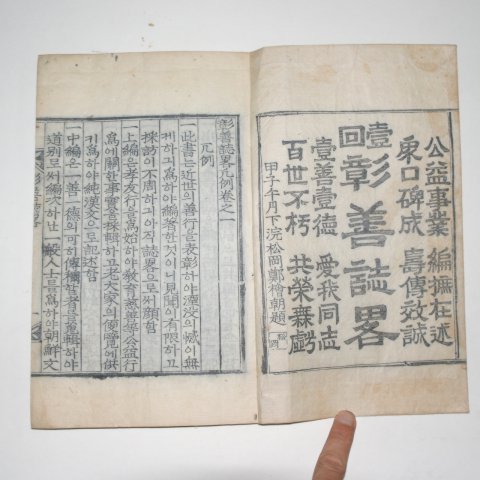 公益事業 編摭在述
衆口碑成 壽傳效誠
壹回彰善誌畧
壹善壹德 愛我同志
百世不朽 共榮無虧
甲子午月下浣松岡鄭檜朝題
彰善誌畧凡例卷之一
凡例
一此書는近世의善行을表彰하야湮沒의憾이無
케하긔爲하야編者한것이니見聞이有限하고
採訪이不周하긔아직誌畧으로써顔함
一上編은孝友行을爲始하야敎育慈善等公益行
爲에關한事實을採輯하고老大家의便覽에供
긔爲하야純漢文으로記述함
一中編은一善一德의可히傳할者을蒐輯하야
道別로써編次하니一般人士를爲하야朝鮮文